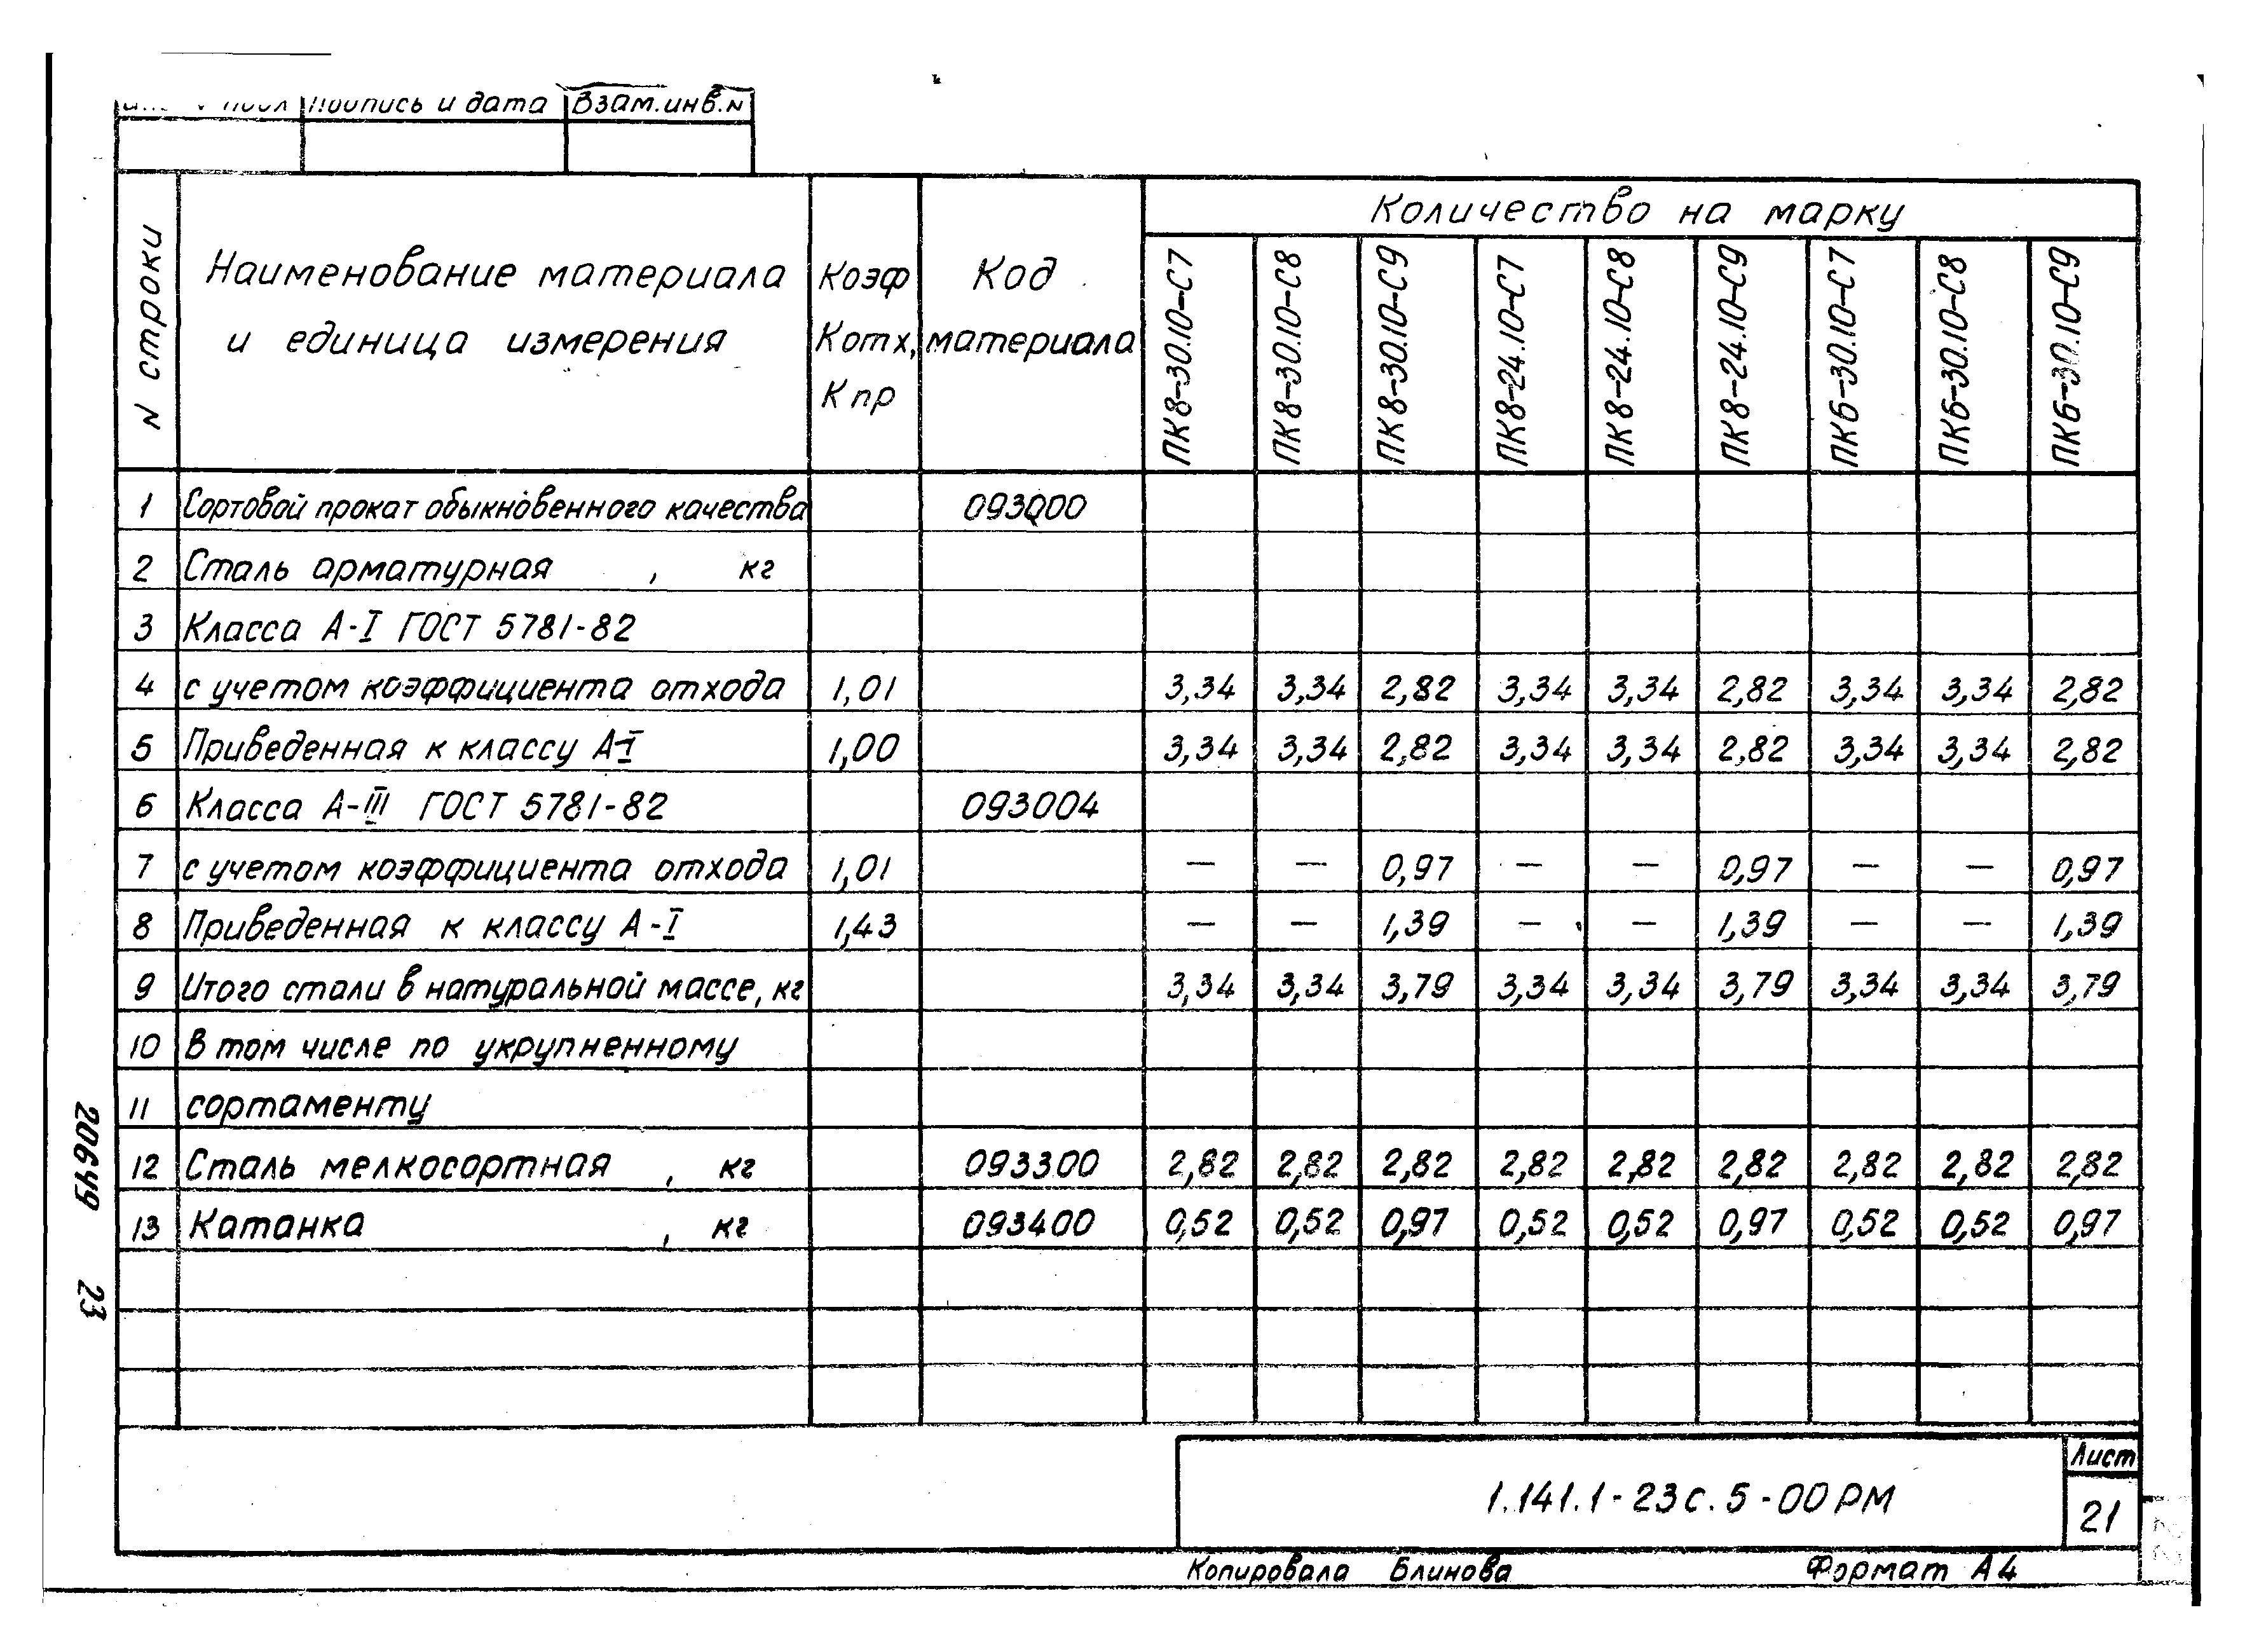 подл Подпись и дата Взам.инв.N
N строки
Наименование материала
и единица измерения
Коэф
Котх,
Кпр
Код
материала
Количество на марку
ПК8-30.10-С7 ПК8-30.10-С8 ПК8-30.10-С9 ПК8-24.10-С7 ПК8-24.10-С8 ПК8-24.10-С9 ПК6-30.10-С7 ПК6-30.10-С8 ПК6-30.10-С9
1 Сортовой прокат обыкновенного качества 093000
2 Сталь арматурная , кг
3 Класса А-I ГОСТ 5781-82
4 с учетом коэффициента отхода 1,01 3,34 3,34 2,82 3,34 3,34 2,82 3,34 3,34 2,82
5 Приведенная к классу А-I 1,00 3,34 3,34 2,82 3,34 3,34 2,82 3,34 3,34 2,82
6 Класса А-III ГОСТ 5781-82 093004
7 с учетом коэффициента отхода 1,01 — — 0,97 — — 0,97 — — 0,97
8 Приведенная к классу А-I 1,43 — — 1,39 — — 1,39 — — 1,39
9 Итого стали в натуральной массе, кг 3,34 3,34 3,79 3,34 3,34 3,79 3,34 3,34 3,79
10 В том числе по укрупненному
11 сортаменту
12 Сталь мелкосортная , кг 093300 2,82 2,82 2,82 2,82 2,82 2,82 2,82 2,82 2,82
13 Катанка , кг 093400 0,52 0,52 0,97 0,52 0,52 0,97 0,52 0,52 0,97
20649 23
1.141.1-23с.5-00РМ
Лист
21
Копировала Блинова Формат А4